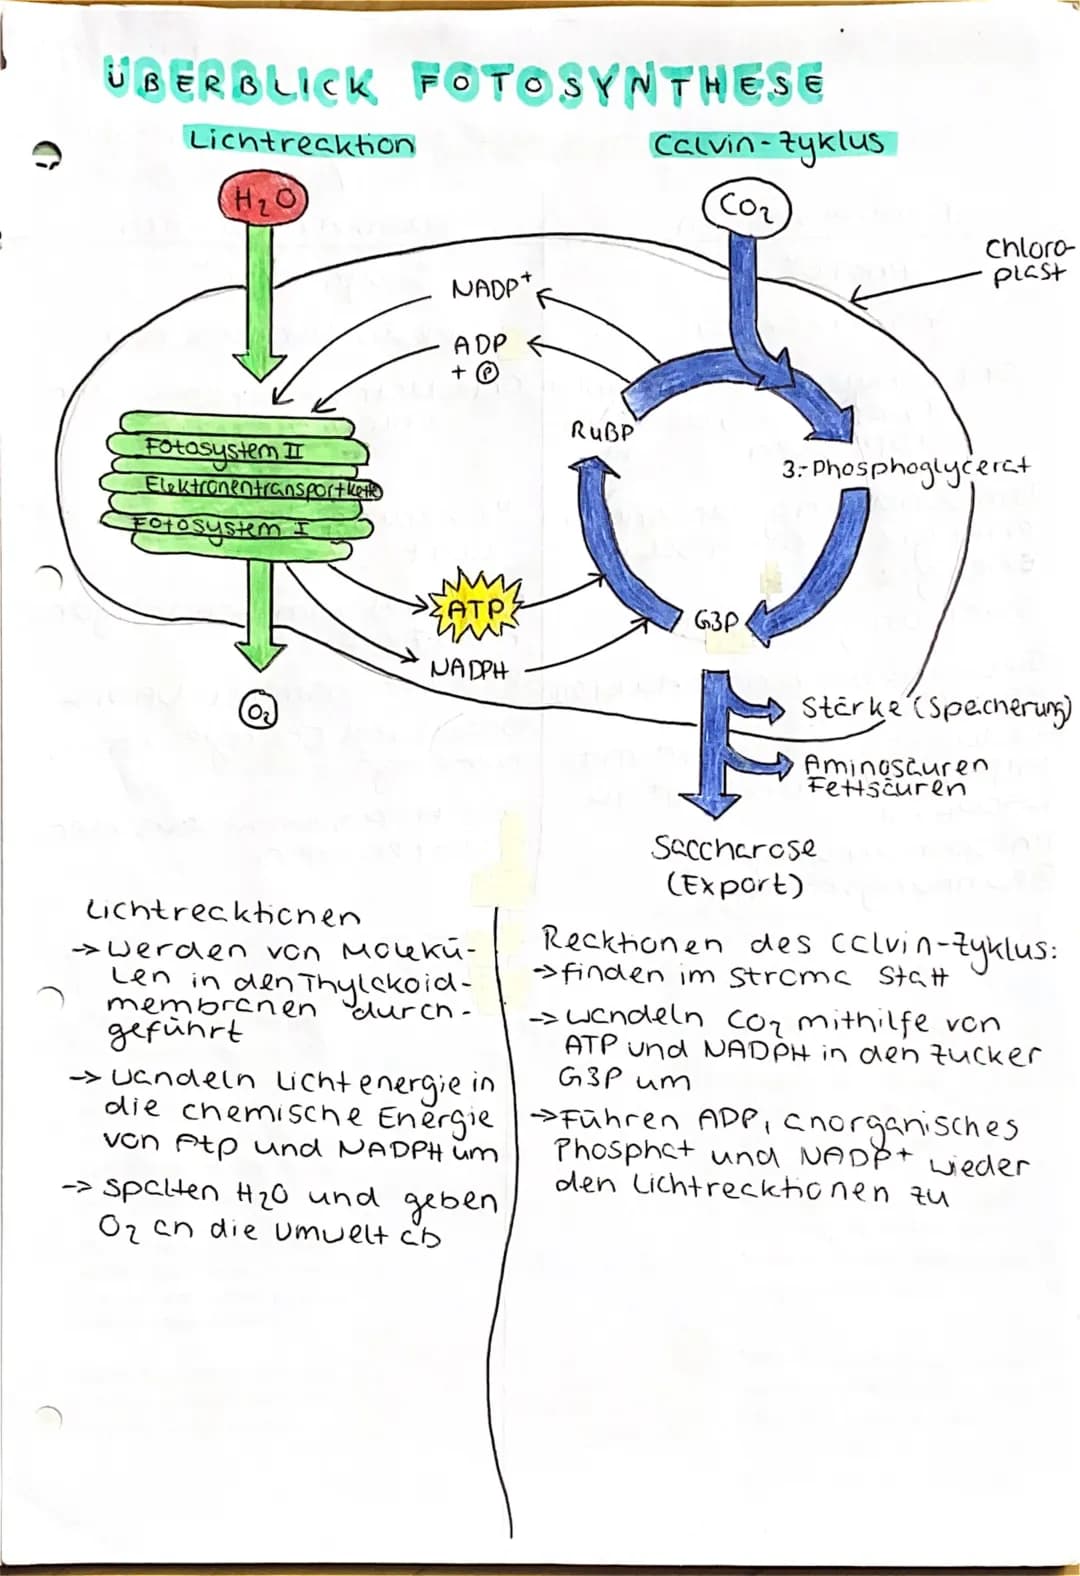 ÜBERBLICK FOTOSYNTHESE
Lichtreaktion
Calvin-Zyklus
H₂O
CO₂
Chloro-
plast
NADP⁺
ADP
+ P
RuBP
Fotosystem II
Elektronentransportkette
Fotosystem I
3-Phosphoglycerat
ATP
G3P
NADPH
O₂
Stärke (Speicherung)
Aminosäuren
Fettsäuren
Saccharose
(Export)
Lichtreaktionen
→ werden von Molekü-
len in den Thylakoid-
membranen durch-
geführt
→ wandeln Lichtenergie in
die chemische Energie
von Atp und NADPH um
→ spalten H₂O und geben
O₂ an die Umwelt ab
Reaktionen des Calvin-Zyklus:
→ finden im Stroma statt
→ wandeln CO₂ mithilfe von
ATP und NADPH in den Zucker
G3P um
→ Führen ADP, anorganisches
Phosphat und NADP+ wieder
den Lichtreaktionen zu